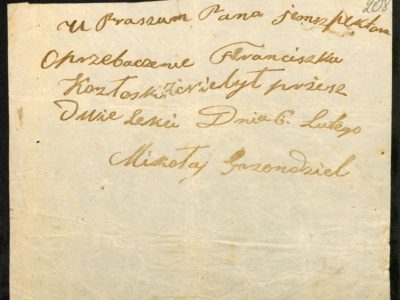 208
U Praszum Pana jenszpektora
Oprzebaczenie Franciszku
Kozłoski żeniebył przesz
Dwie Lekci Dnia 6. Lutego
Mikołaj Grzondziel